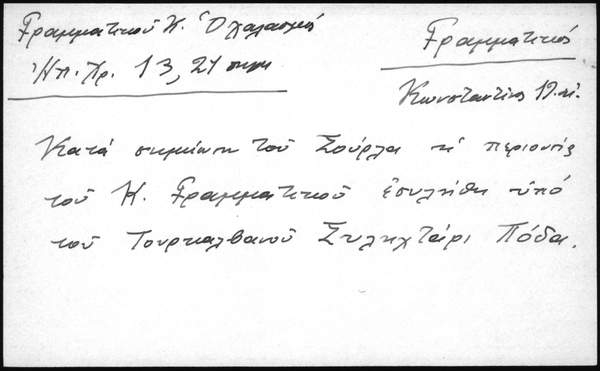 Γραμματικοῦ Κ. Ὁ χαλασμός
Ἠπ. Χρ. 13, 21 σημ
Γραμματικός
Κωνσταντῖνος 19. αἰ.
Κατά σημείωση τοῦ Σούρλα ἡ περιουσία
τοῦ Κ. Γραμματικοῦ ἐσυλήθη ὑπό
τοῦ Τουρκαλβανοῦ Σιλιχτάρι Πόδα.